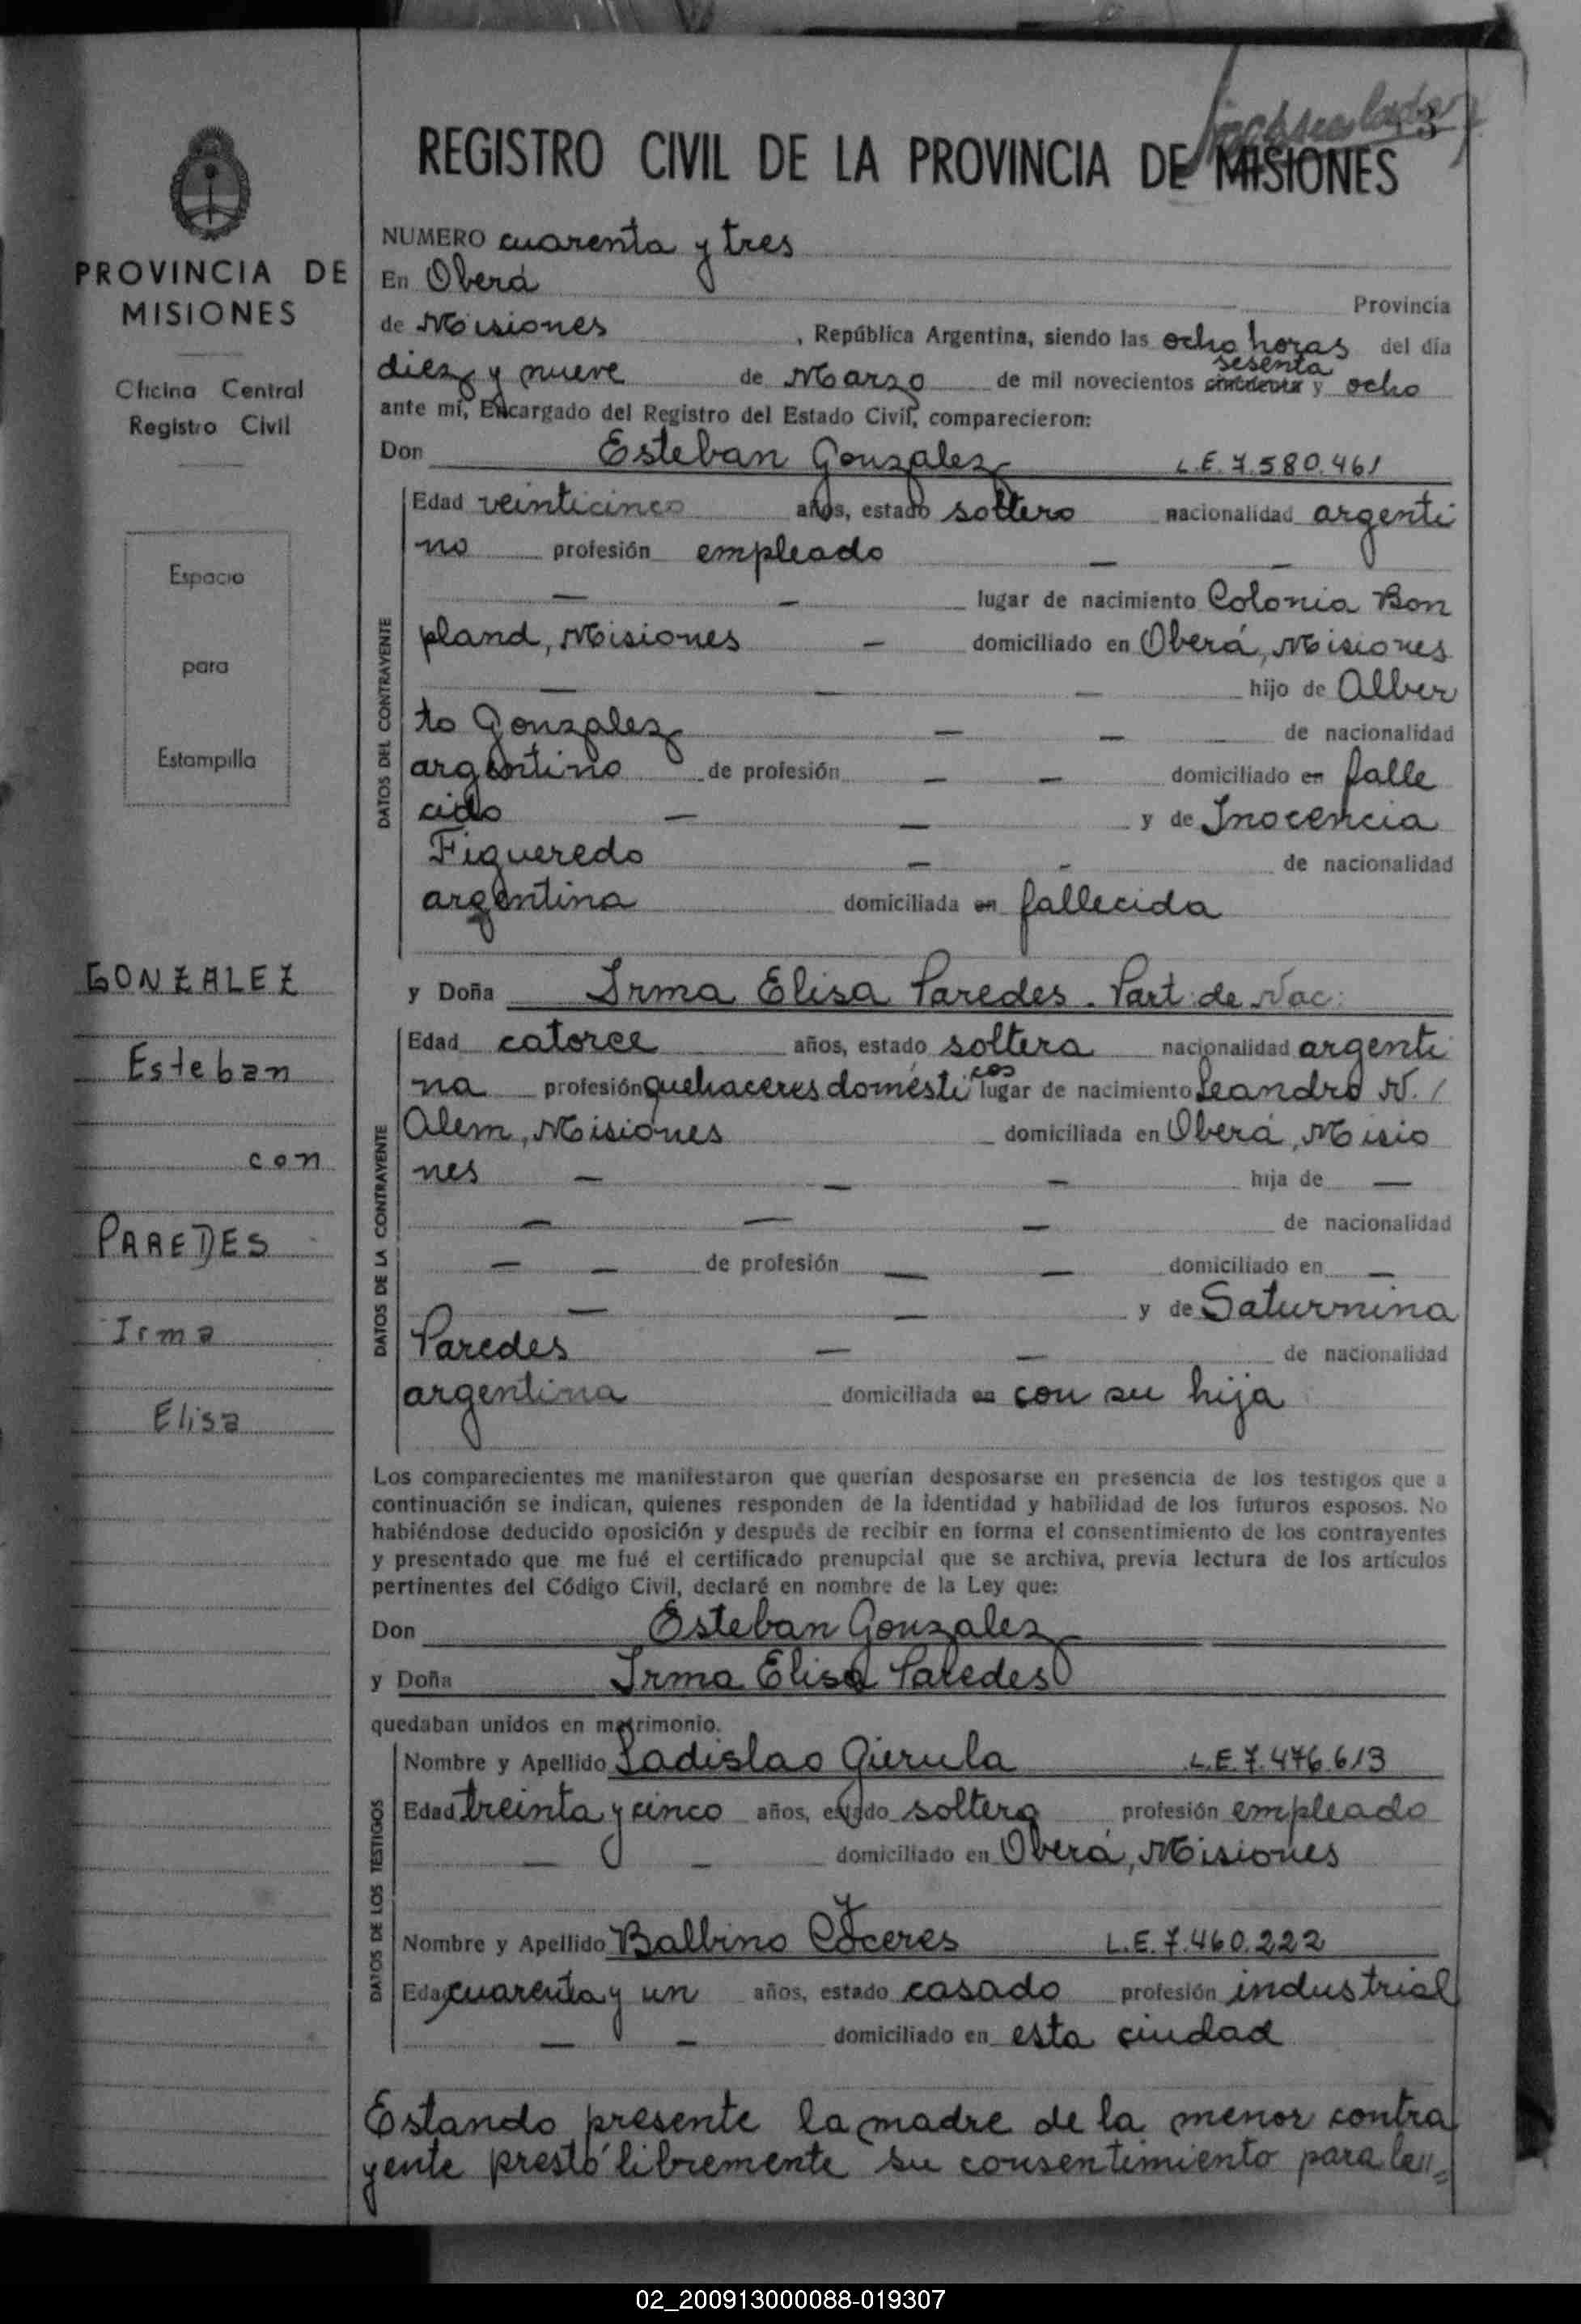 PROVINCIA DE
MISIONES
Oficina Central
Registro Civil
Espacio
para
Estampilla
GONZALEZ
Esteban
con
PAREDES
Irma
Elisa
REGISTRO CIVIL DE LA PROVINCIA DE MISIONES
NUMERO cuarenta y tres
En Oberá Provincia
de Misiones, República Argentina, siendo las ocho horas del día
sesenta
diez y nueve de Marzo de mil novecientos cincuenta y ocho
ante mí, Encargado del Registro del Estado Civil, comparecieron:
Don Esteban Gonzalez L.E. 7.580.461
DATOS DEL CONTRAYENTE
Edad veinticinco años, estado soltero nacionalidad argenti
no profesión empleado — —
— — lugar de nacimiento Colonia Bon
pland, Misiones — domiciliado en Oberá, Misiones
— — — hijo de Alber
to Gonzalez — — de nacionalidad
argentino de profesión — — domiciliado en falle
cido — — y de Inocencia
Figueredo — - de nacionalidad
argentina domiciliada en fallecida
y Doña Irma Elisa Paredes. Part: de Nac:
DATOS DE LA CONTRAYENTE
Edad catorce años, estado soltera nacionalidad argenti
na profesión quehaceres domésticos lugar de nacimiento Leandro N. /
Alem, Misiones domiciliada en Oberá, Misio
nes — — — hija de —
— — — de nacionalidad
— — de profesión — — domiciliado en —
— — y de Saturnina
Paredes — — de nacionalidad
argentina domiciliada en con su hija
Los comparecientes me manifestaron que querían desposarse en presencia de los testigos que a
continuación se indican, quienes responden de la identidad y habilidad de los futuros esposos. No
habiéndose deducido oposición y después de recibir en forma el consentimiento de los contrayentes
y presentado que me fué el certificado prenupcial que se archiva, previa lectura de los artículos
pertinentes del Código Civil, declaré en nombre de la Ley que:
Don Esteban Gonzalez
y Doña Irma Elisa Paredes
quedaban unidos en matrimonio.
DATOS DE LOS TESTIGOS
Nombre y Apellido Ladislao Gierula L.E. 7.476.613
Edad treinta y cinco años, estado soltero profesión empleado
— — domiciliado en Oberá, Misiones
y
Nombre y Apellido Balbino Cáceres L.E. 7.460.222
Edad cuarenta y un años, estado casado profesión industrial
— — domiciliado en esta ciudad
Estando presente la madre de la menor contra
yente prestó libremente su consentimiento para le=
02_200913000088-019307